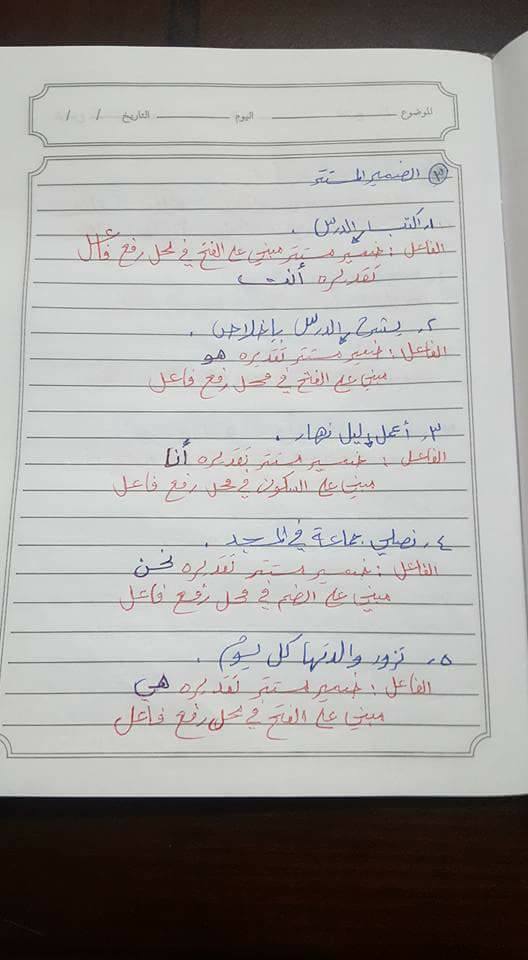 الموضوع اليوم التاريخ / /
٣ الضمير المستتر
١. اكتب الدرس .
الفاعل : ضمير مستتر مبني على الفتح في محل رفع فاعل
تقديره أنت
٢. يشرح الدرس بإخلاص .
الفاعل : ضمير مستتر تقديره هو
مبني على الفتح في محل رفع فاعل
٣. أعمل ليل نهار .
الفاعل : ضمير مستتر تقديره أنا
مبني على السكون في محل رفع فاعل
٤. نصلي جماعة في المسجد .
الفاعل : ضمير مستتر تقديره نحن
مبني على الضم في محل رفع فاعل
٥. تزور والدتها كل يوم .
الفاعل : ضمير مستتر تقديره هي
مبني على الفتح في محل رفع فاعل